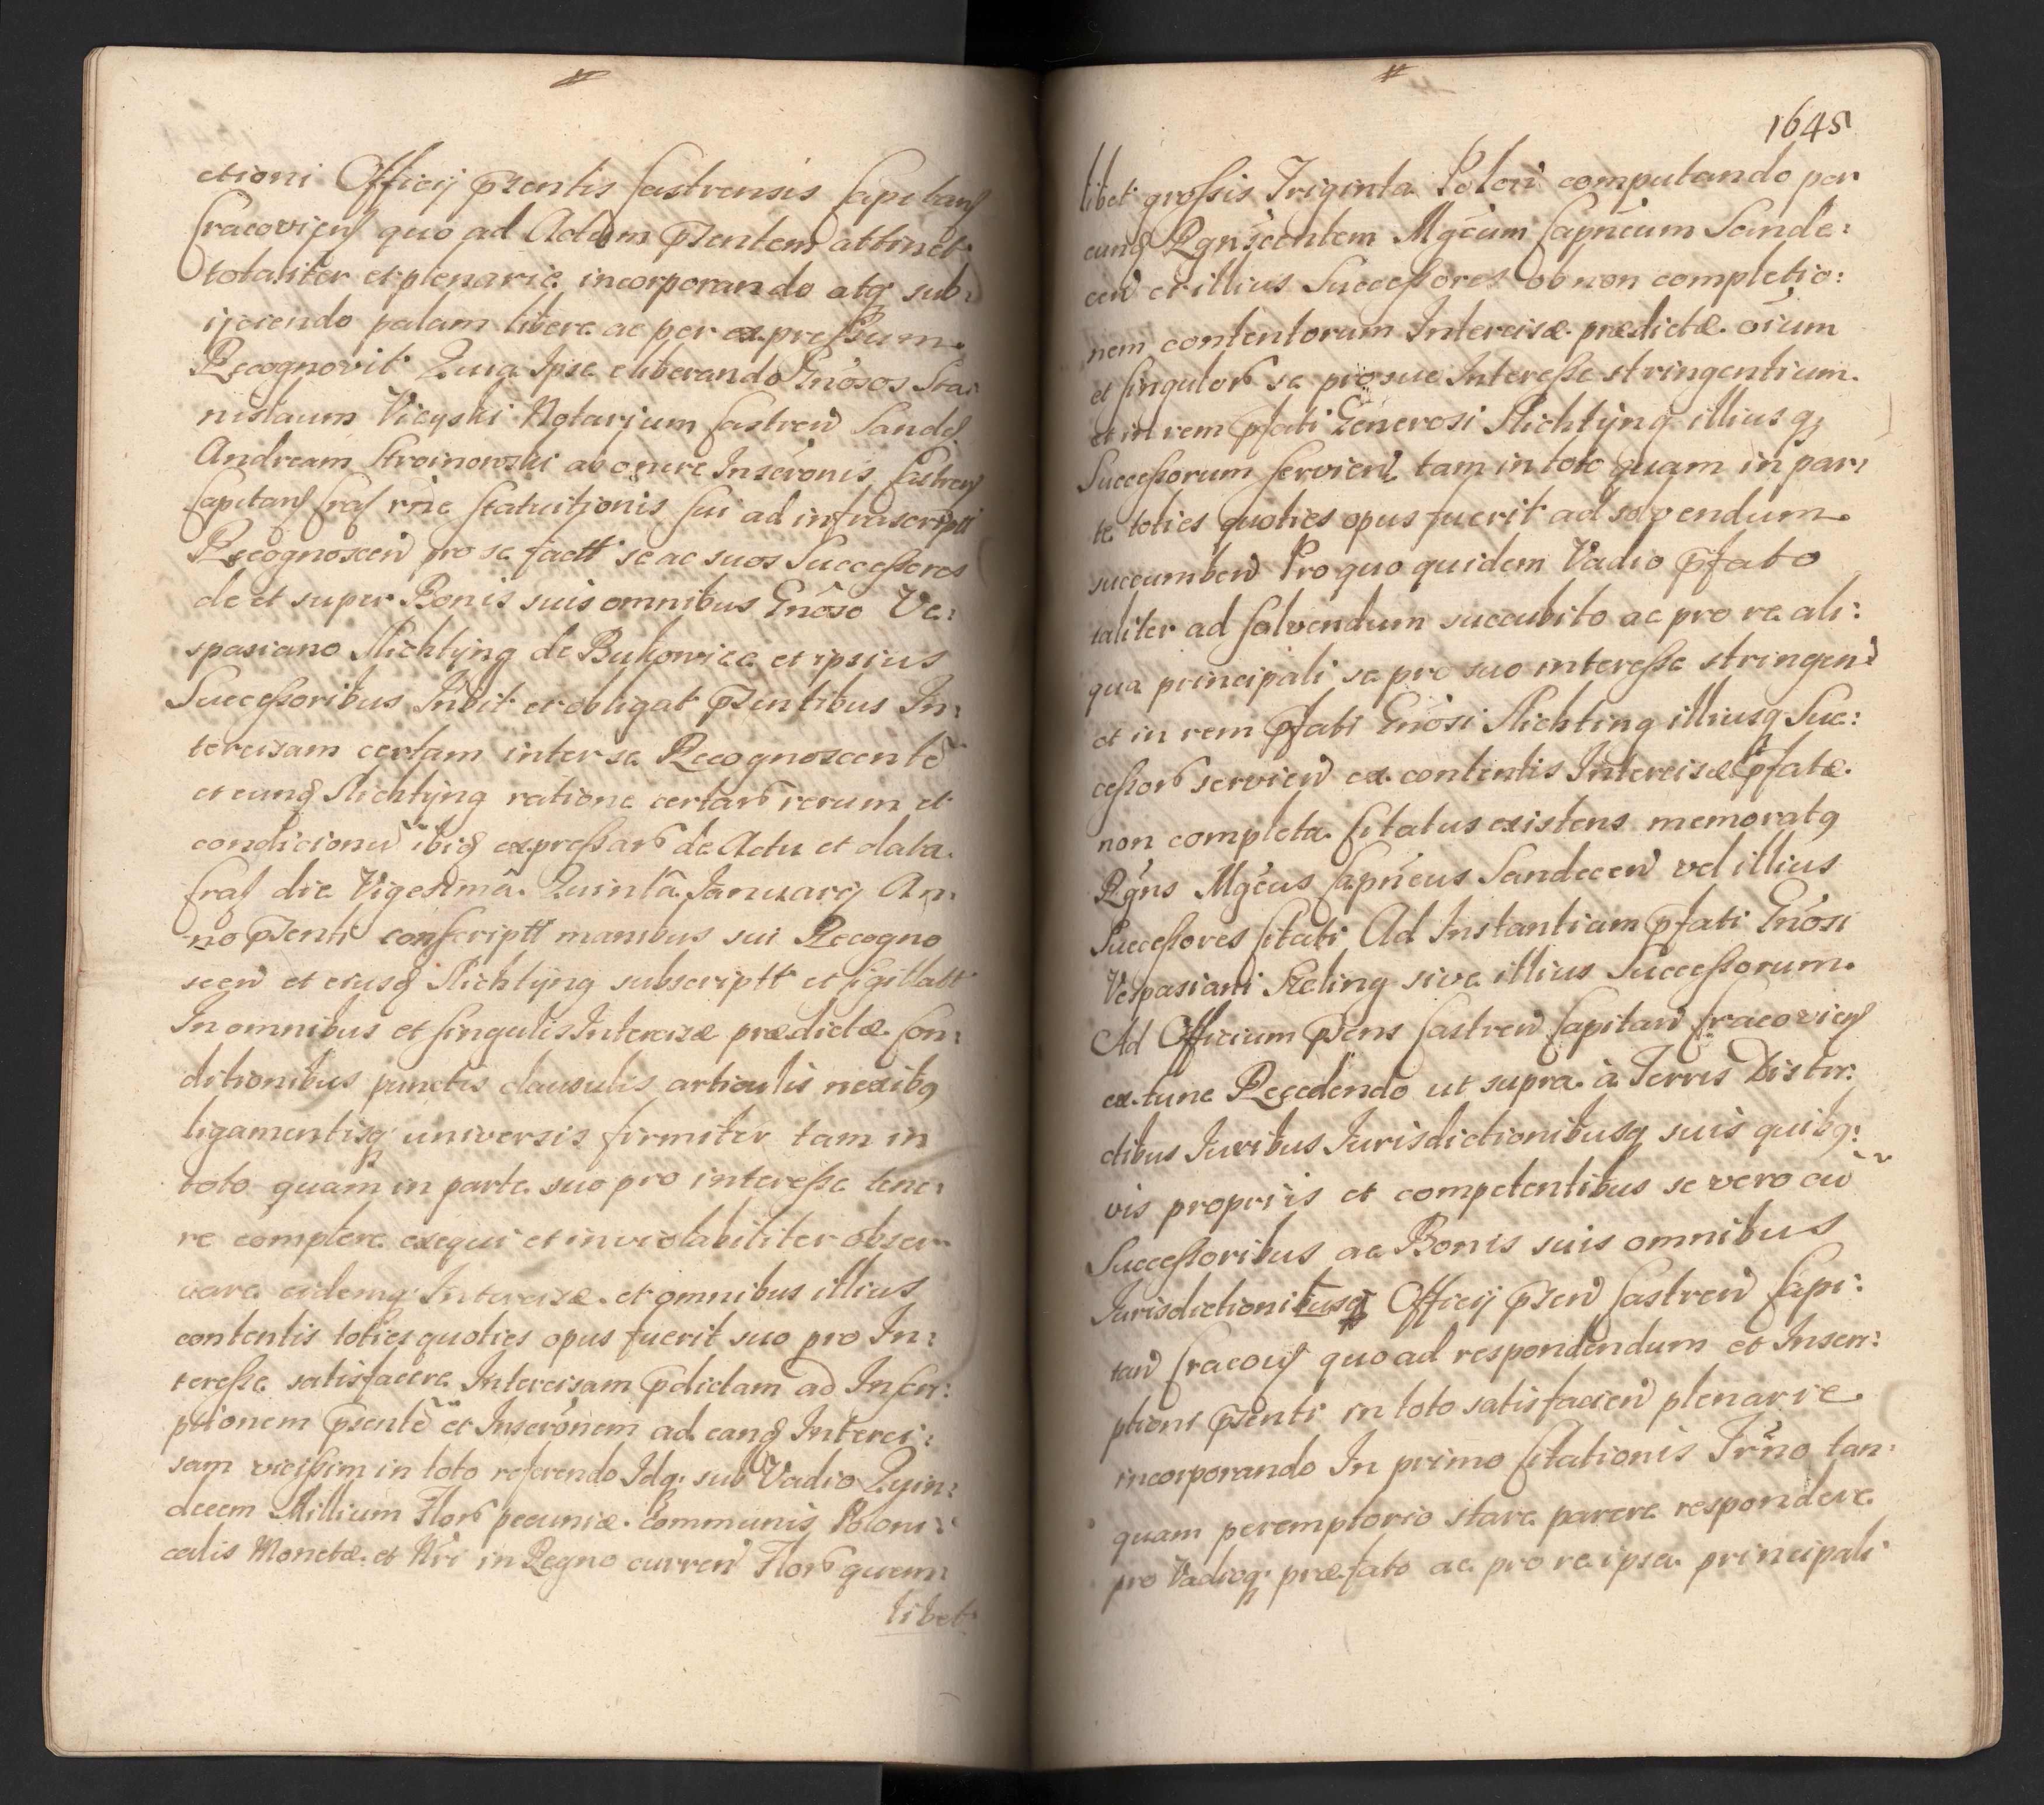 ctioni Officij p̃sentis Castrensis Capitan̄
Cracovien̄ quo ad Actum p̃sentem attinet
totaliter et plenarie incorporando atq; sub:
ijciendo palam libere ac per expressum.
Recognovit Quia Ipse eliberando Gn̄osos Sta:
nislaum Vicyski Notarium Castren̄ Sandē.
Andream Stroinowski ab onere Inscr̄onis Castren̄
Capitan̄ Crac̄ rñe statuitionis sui ad infrascriptt
Recognoscen̄ pro se factt se ac suos Successores
de et super Bonis suis omnibus Gn̄oso Ve:
spasiano Slichtÿng de Bukowiec et ipsius
Successoribus In̄bit et obligat p̃sentibus In:
tercisam certam inter se Recognoscentē
et eund̄ Slichtÿng ratione certar̄ rerum et
condicionū ibid̄ expressar̄ de Actu et data.
Crac̄ die Vigesimâ. Quintâ Januarij An:
no p̃senti conscriptt manibus sui Recogno
scen̄ et eiusd̄ Slichtÿng subscriptt et sigillatt
In omnibus et singulis Intercisæ prædictæ Con:
ditionibus punctis clausulis articulis nexibq
ligamentisq; universis firmiter tam in
toto quam in parte suo pro interesse tene:
re complere exequi et inviolabiliter obser:
vare eidemq; Intercisæ et omnibus illius
contentis toties quoties opus fuerit suo pro In:
teresse satisfacere Intercisam p̃dictam ad Inscri:
ptionem p̃sentē et Inscr̄onem ad eand̄ Interci:
sam vicissim in toto referendo Idq; sub Vadio Quin:
decem Millium Flor̄ pecuniæ communis Poloni:
calis Monetæ et Nr̄i in Regno curren̄ Flor̄ quem:
libet
1645
libet grossis Triginta Polon̄ computando per
eund̄ Rgn̄scentem Mgc̄um Capn̄eum Sande:
cen̄ et illius Successores ob non completio:
nem contentorum Intercisæ prædictæ ōium
et singulor̄ se pro suo Interesse stringentium.
et in rem p̃fati Generosi Slichtÿng illiusq;
Successorum servien̄ tam in toto quam in par:
te toties quoties opus fuerit ad solvendum.
succumben̄ Pro quo quidem Vadio p̃fato
taliter ad solvendum succubito ac pro re ali:
qua principali se pro suo interesse stringen̄
et in rem p̃fati Gn̄osi Slichting illiusq; Suc:
cessor̄ servien̄ ex contentis Intercisæ p̃fatæ
non completa Citatus existens memoratq
Rgn̄s Mgc̄us Capn̄eus Sandecen̄ vel illius
Successores Citati Ad Instantiam p̃fati Gn̄osi
Vespasiani Szeling sive illius Successorum.
Ad Officium p̃sens Castren̄ Capitan̄ Cracovien̄
ex tunc Recedendo ut supra à Terris Distri:
ctibus Iuribus Iurisdictionibusq; suis quibq:
vis propriis et competentibus se vero cū
Successoribus ac Bonis suis omnibus
Iurisdictionibusq; Officij p̃sen̄ Castren̄ Capi:
tan̄ Cracov̄ quo ad respondendum et Inscri:
ptioni p̃senti in toto satisfacien̄ plenarie
incorporando In primo Citationis Tr̄no tan:
quam peremptorio stare parere respondere
pro Vadioq; præfato ac pro re ipsa principali